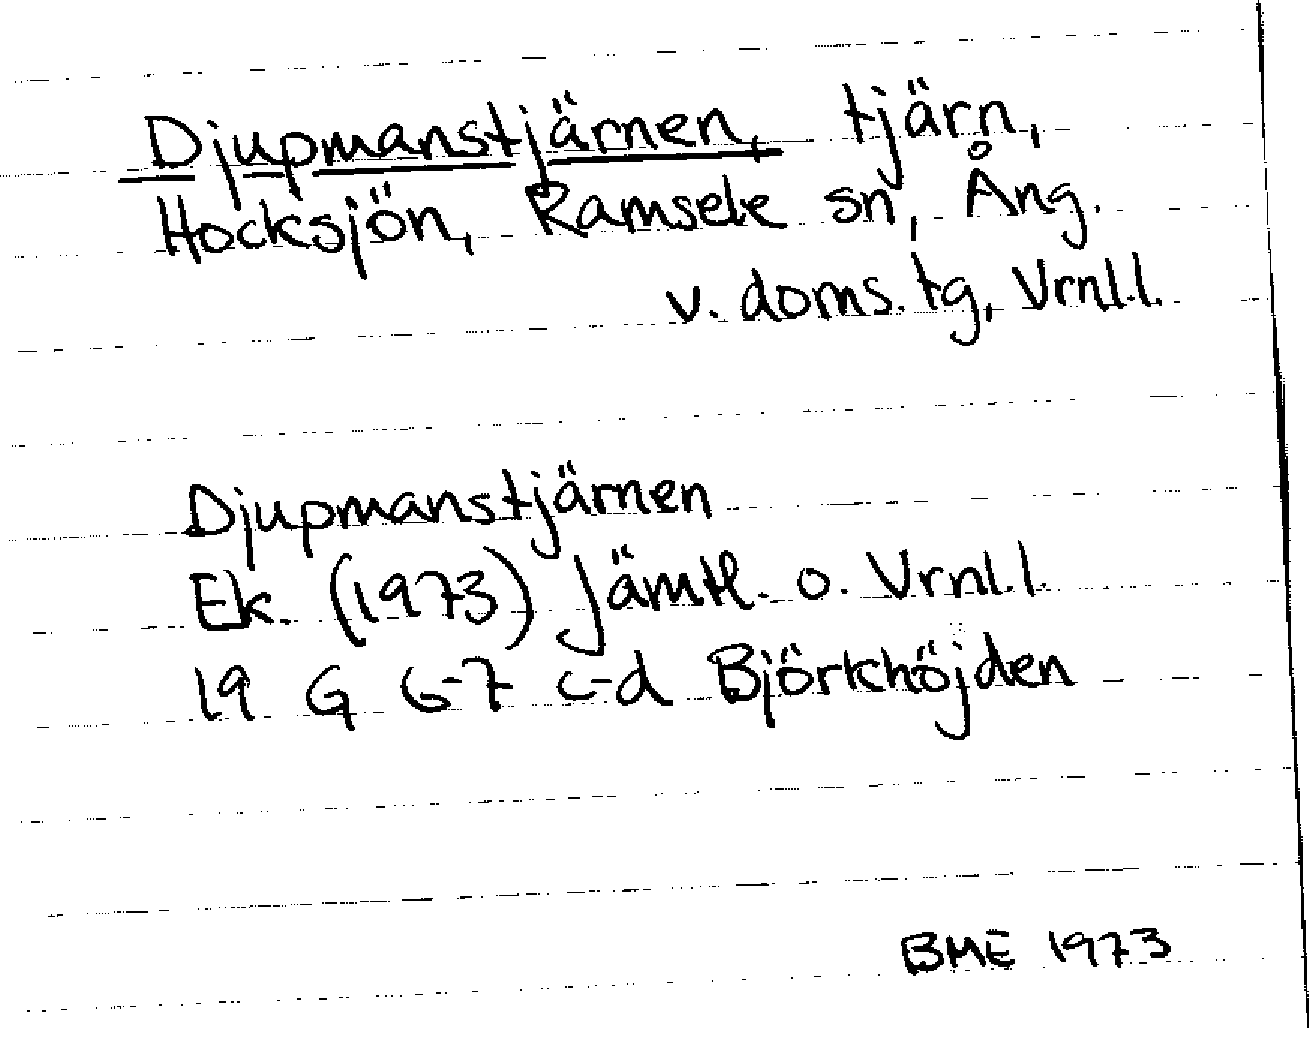 Djupmanstjärnen, tjärn,
Hocksjön, Ramsele sn, Ång.
v. doms. tg, Vrnl.l.
Djupmanstjärnen
Ek. (1973) Jämtl. o. Vrnl.l.
19 G 6-7 c-d Björkhöjden
BME 1973